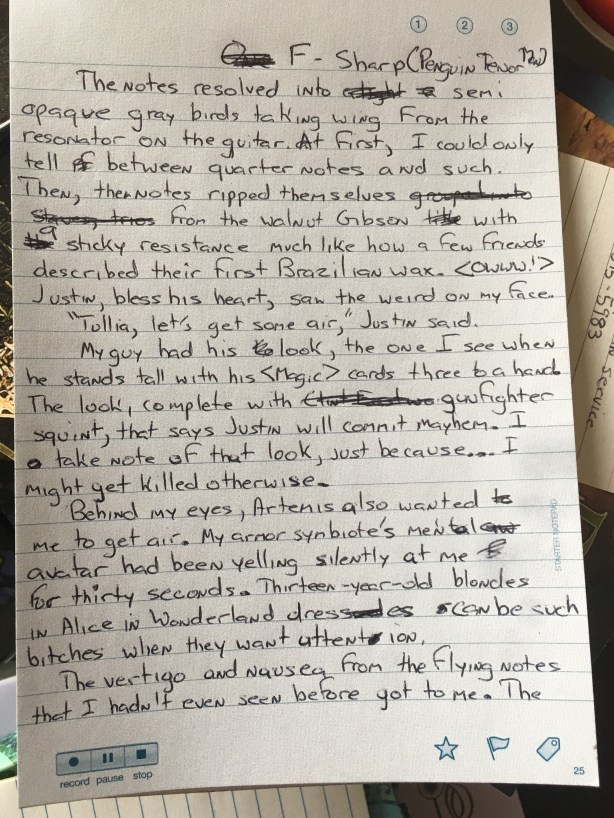 1 2 3
F-Sharp (Penguin Tenor
The notes resolved into semi
opaque gray birds taking wing from the
resonator on the guitar. At first, I could only
tell between quarter notes and such.
Then, the notes ripped themselves
from the walnut Gibson with
a sticky resistance much like how a few friends
described their first Brazilian wax. <Owww!>
Justin, bless his heart, saw the weird on my face.
"Tullia, let's get some air," Justin said.
My guy had his look, the one I see when
he stands tall with his <Magic> cards three to a hand.
The look, complete with gunfighter
squint, that says Justin will commit mayhem. I
take note of that look, just because... I
might get killed otherwise.
Behind my eyes, Artemis also wanted
me to get air. My armor synbiote's mental
avatar had been yelling silently at me
for thirty seconds. Thirteen-year-old blondes
in Alice in Wonderland dresses can be such
bitches when they want attention.
The vertigo and nausea from the flying notes
that I hadn't even seen before got to me. The
STARTER NOTEPAD
record pause stop
25
5983
service